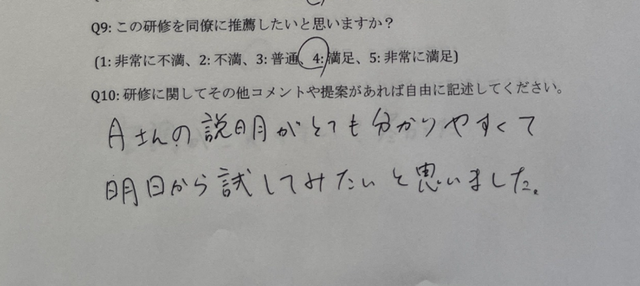 Q9: この研修を同僚に推薦したいと思いますか？
(1: 非常に不満、2: 不満、3: 普通、4: 満足、5: 非常に満足)
Q10: 研修に関してその他コメントや提案があれば自由に記述してください。
Aさんの説明がとても分かりやすくて
明日から試してみたいと思いました。